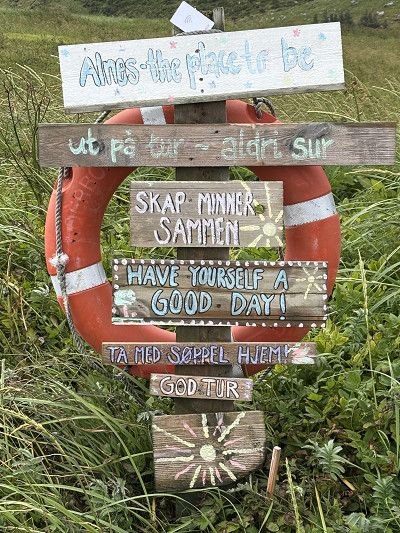 Alnes-the place tr be
ut på tur - aldri sur
SKAP MINNER
SAMMEN
HAVE YOURSELF A
GOOD DAY!
TA MED SØPPEL HJEM!
GOD TUR